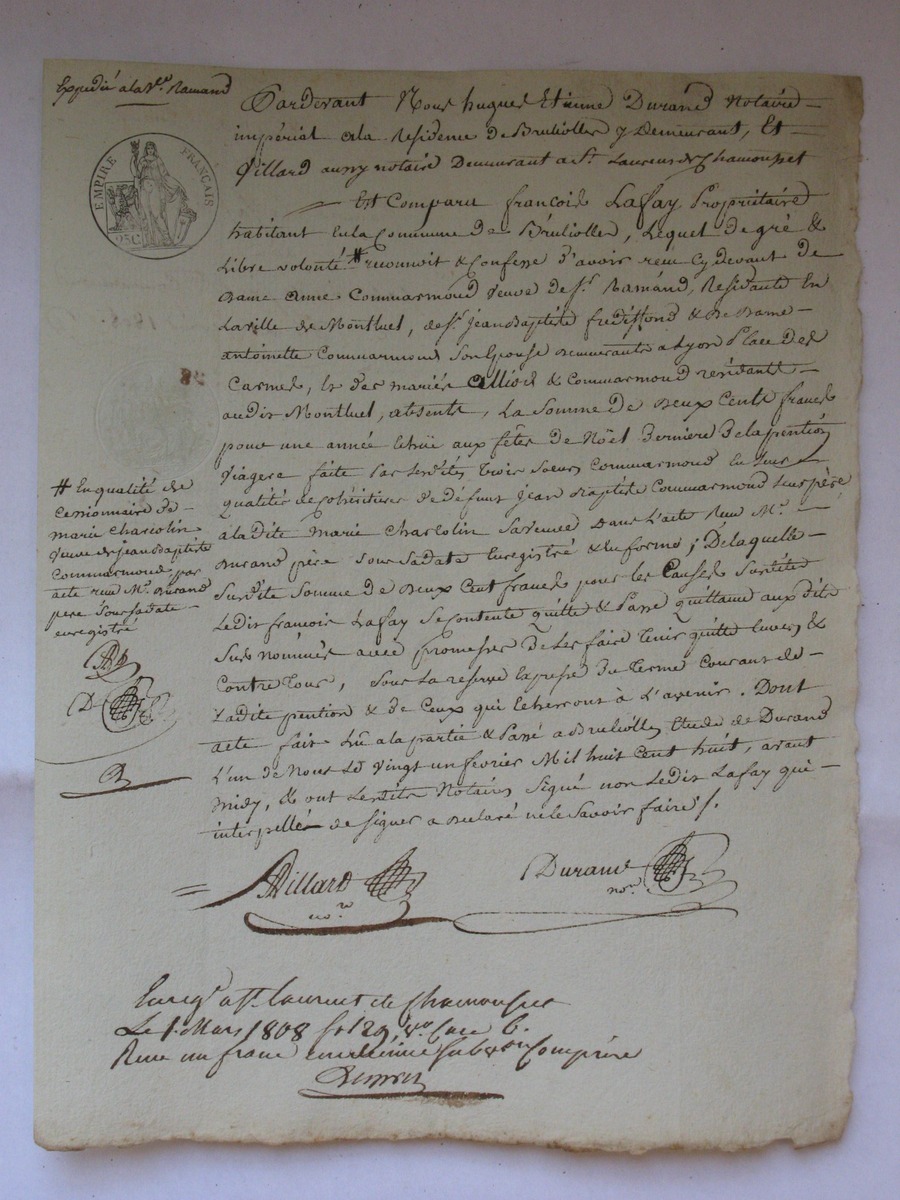 Expedié a la V.ve Ramand
Pardevant Nous hugues Etienne Durand Notaire
impérial a la Residence de Brullolles y Demeurant, Et
Villard aussy notaire Demeurant a St Laurent de Chamousset
EMPIRE FRANÇAIS
25C
Est Comparu françois Lafay Propriétaire
habitant en la Commune de Brullolles, Lequel de gré &
Libre volonté # reconnoit & Confesse d'avoir recu Cy devant de
Dame anne Commarmond veuve de Sr. Ramand, Residante En
La ville de Montluel, de Sr. jean Baptiste & De Dame
antoinette Commarmond Son Epouse demeurants a Lyon Place des
Carmes, & des mariés & Commarmond residants
audit Montluel, absents, La Somme de Deux Cents francs
pour une année Echüe aux fêtes de Noël Derniere De la pention
viagere faite par Lesdites trois Soeurs Commarmond En Leur
qualités de Cohéritieres de défunt jean Baptiste Commarmond leur père
à la dite marie Charcolin Sa veuve Dans L'acte Recu Me.
Durand père Sous Sa date Enregistré & En forme ; De laquelle
Susdite Somme de Deux Cent francs pour les Causes Susdites
Ledit francois Lafay Se Contente quitte & Passe quittance aux dits
Sus nommés avec promesse de Les faire tenir quitte Envers &
Contre tous, Sous La reserve Expresse du terme Courant de
Ladite pention & De Ceux qui Echerront à L'avenir. Dont
acte fait Lû a la partie & Passé a Brullolles Etude de Durand
L'un de Nous Le vingt un fevrier Mil huit Cent huit, avant
midy, & ont Lesdits Notaires Signé non Ledit Lafay qui
interpellé de Signer a Declaré ne le Savoir faire /.
# En qualité de
Cessionnaire de
marie Charcolin
veuve de jean Baptiste
Commarmond, par
acte recu Me. Durand
pere Sous sa date
enregistré
D
Villard
no.re
Durand
no.re
Enregé. a St. Laurent de Chamousset
Le 1. Mars 1808 fo 129, vo. Case 6.
Recu un franc dixième Subvon Comprise